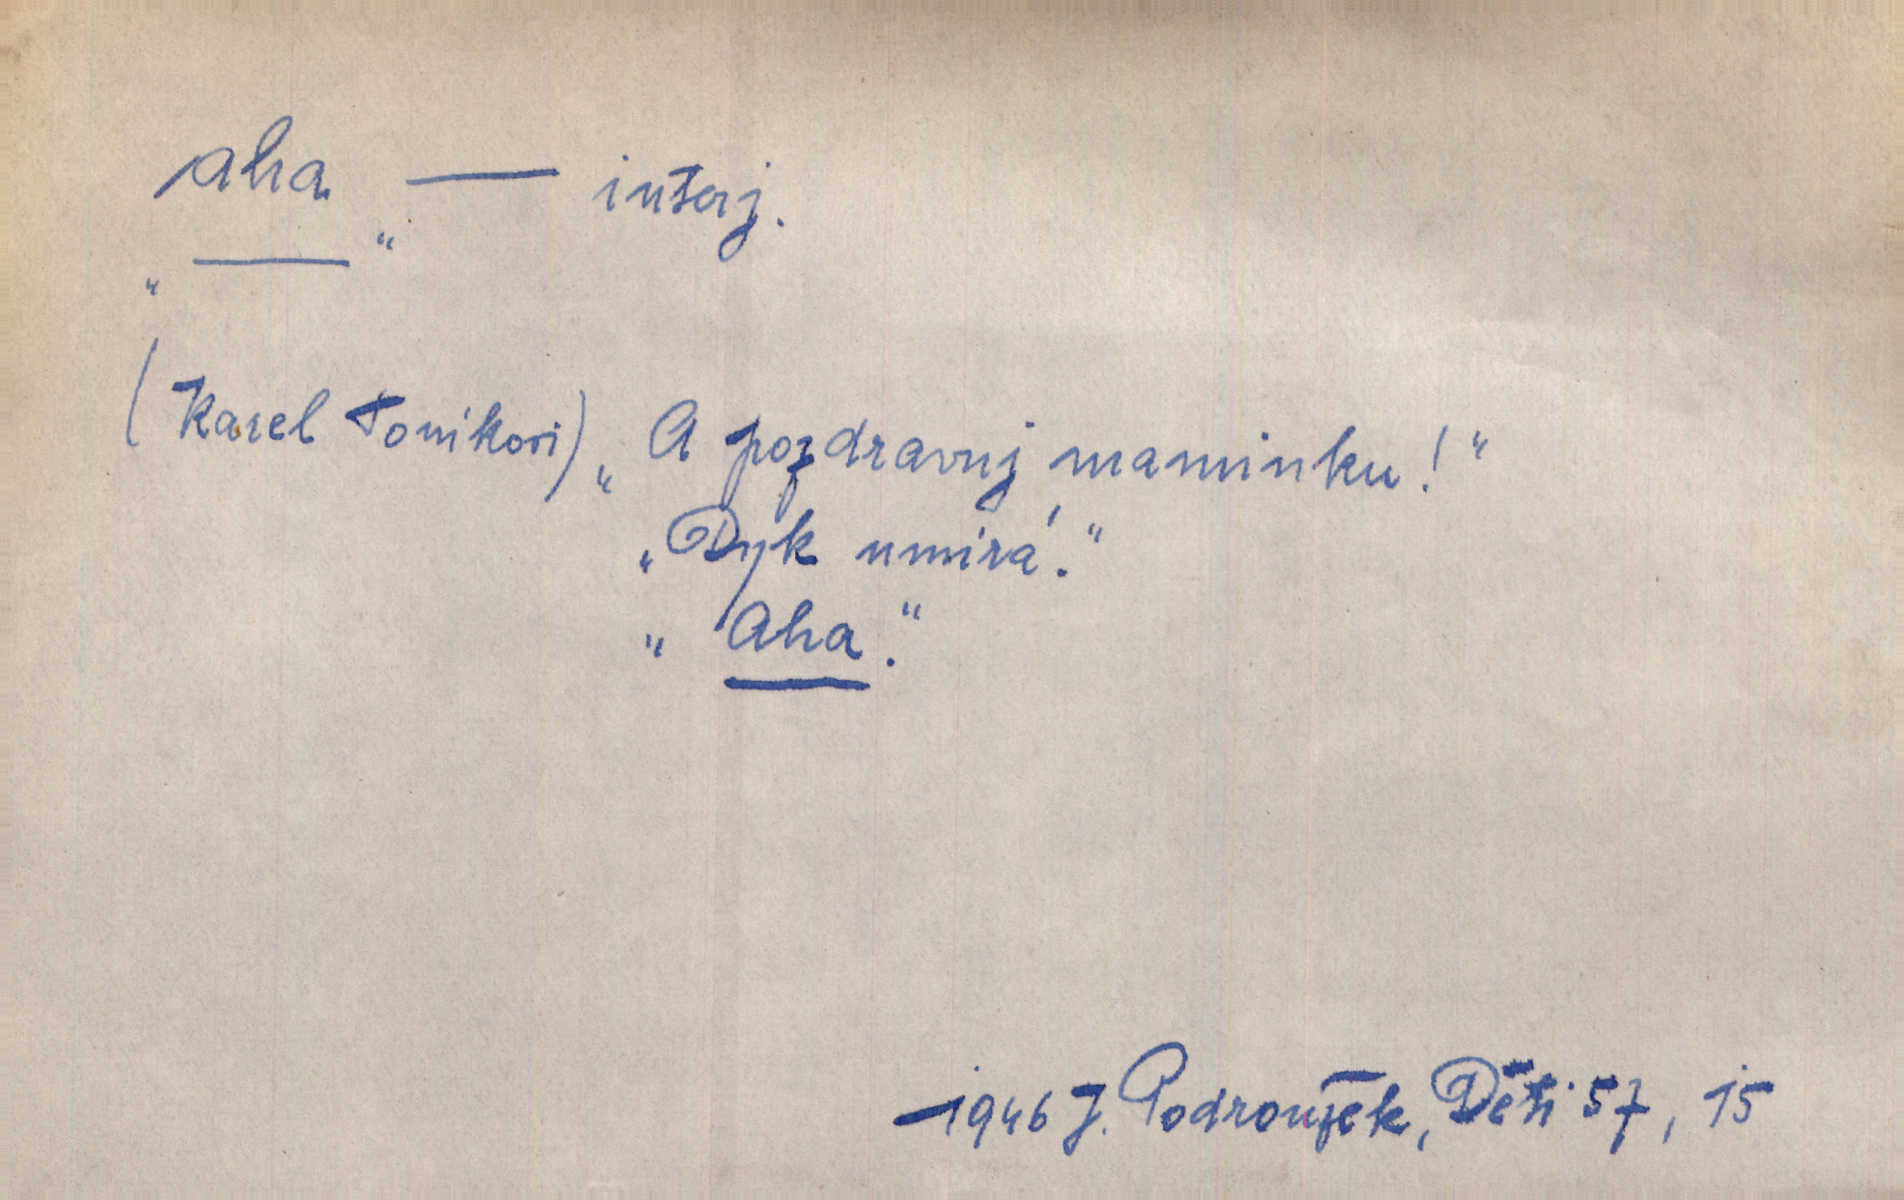 aha — interj.
„ — “
(Karel Toníkovi) „A pozdravuj maminku!“
„Dyk umírá.“
„Aha.“
1946 J. Podroužek, Děti 57, 15